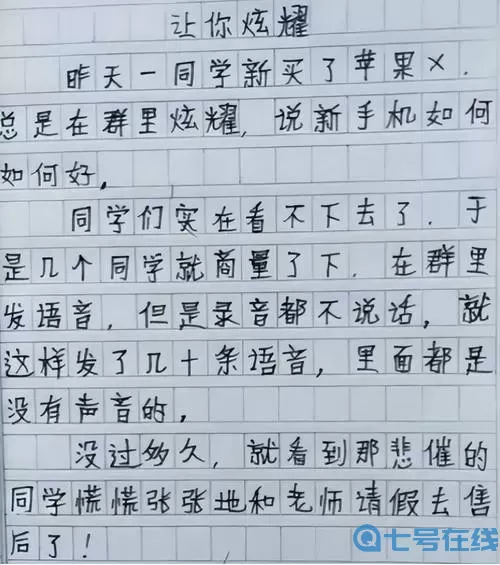 让你炫耀
昨天一同学新买了苹果X.
总是在群里炫耀,说新手机如何
如何好,
同学们实在看不下去了.于
是几个同学就商量了下.在群里
发语音,但是录音都不说话,就
这样发了几十条语音,里面都是
没有声音的,
没过多久,就看到那悲催的
同学慌慌张张地和老师请假去售
后了!
七号在线